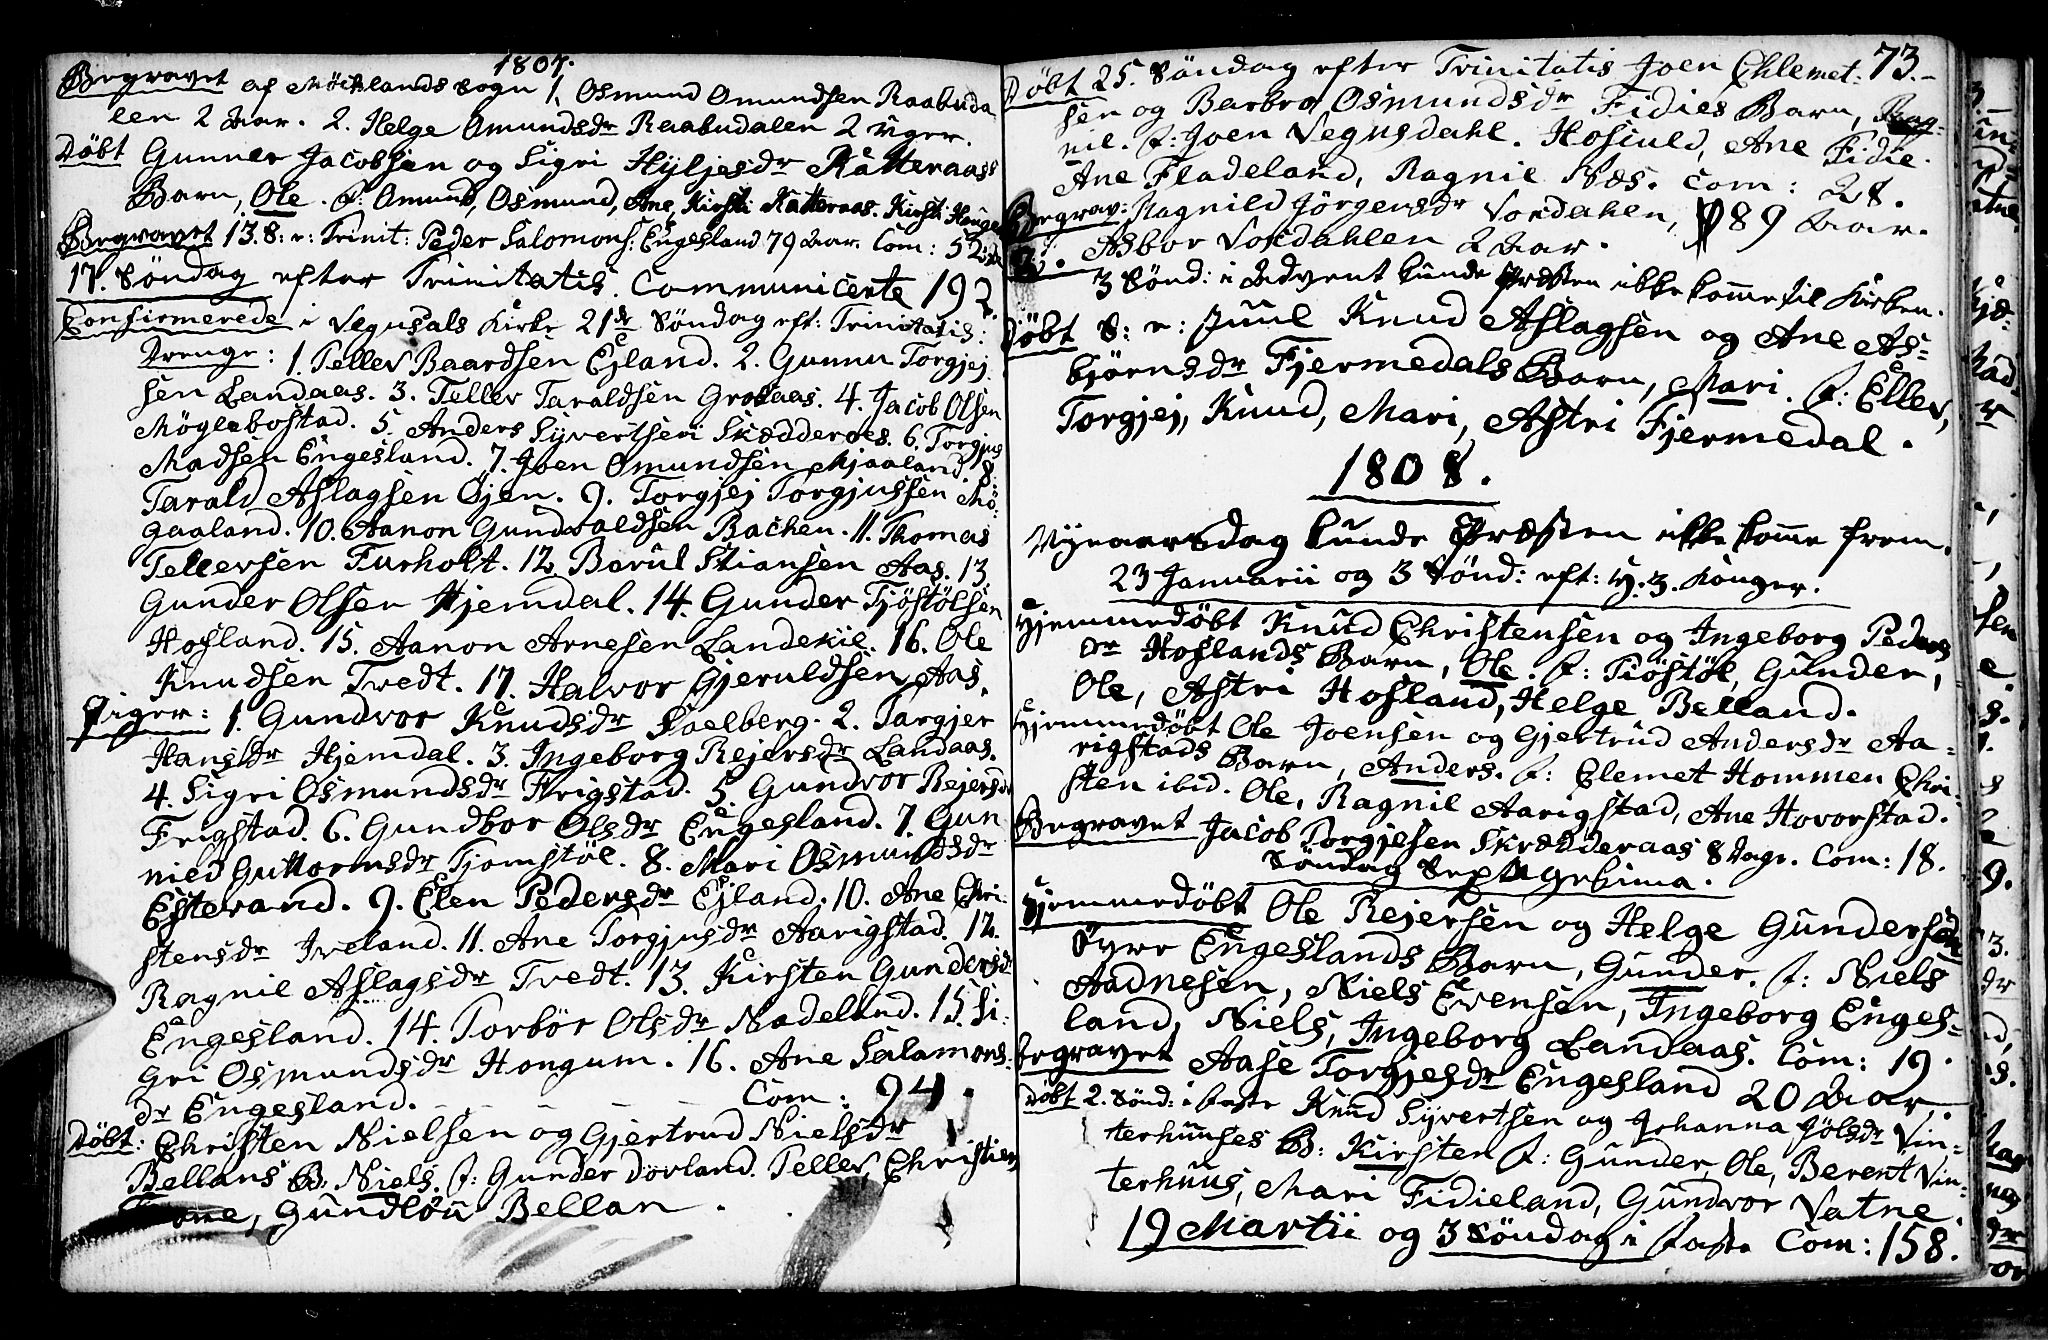 1807.
Begravet af Möcklands Sogn 1. Osmund Omundsen Raabuda
len 2 Aar. 2. Helge Omundsdr Raabudalen 2 Uger.
Döbt Gunner Jacobsen og Sigri Hyljesdr Katteraass
Barn, Ole. F: Omund, Osmund, Ane, Kirsti Katteraas. Kirsti Hauge
Begravet 13.8: e: Trinit: Peder Salomons: Engesland 79 Aar. Com: 52
17. Söndag efter Trinitatis. Communicerte 192.
Confirmerede i Vegusdals Kirke 21de Söndag eft: Trinitatis:
Drenge: 1. Tellev Baardsen Ejland. 2. Gunnu Torgjej
sen Landaas. 3. Tellev Taraldsen Grosaas. 4. Jacob Olsen
Möglebostad. 5. Anders Syvertsen Skeddernes. 6. Torgjus
Madsen Engesland. 7. Joen Omundsen Mjaaland. 8.
Tarald Aslagsen Öjen. 9. Torgjej Torgjussen Mö-
gaaland. 10. Aanon Gundvaldsen Bachen. 11. Thomas
Tellevsen Furholt. 12. Berul Stiansen Aas. 13.
Gunder Olsen Hjemdal. 14. Gunder Tjöstölsen
Hofland. 15. Aanon Arnesen Landekiil. 16. Ole
Knudsen Tvedt. 17. Halvor Gjeruldsen Aas.
Piger: 1. Gundvor Knudsdr Soelberg. 2. Targjer
Hansdr Hjemdal. 3. Ingeborg Rejersdr Landaas.
4. Sigri Osmundsdr Frigstad. 5. Gundvor Rejersdr
Frigstad. 6. Gundbor Olsdr Engesland. 7. Gun
nied Guttormsdr Tjomstöl. 8. Mari Osmundsdr
Estevand. 9. Elen Pedersdr Ejland. 10. Ane Chri-
stensdr Iveland. 11. Ane Torgjusdr Aarigstad. 12.
Ragnil Aslagsdr Tvedt. 13. Kirsten Gundersdr
Engesland. 14. Torbör Olsdr Nadeland. 15. Si-
gri Osmundsdr Hongum. 16. Ane Salamons-
dr Engesland. Com: 94.
Döbt: Christen Nielsen og Gjertrud Nielsdr
Bellans B. Niels. F: Gunder Dovland. Tellev, Christien
Tone, Gundlöu Bellan.
73.
Döbt 25. Söndag efter Trinitatis Joen Chlemet-
sen og Barbro Osmundsdr Fidies Barn, Rag-
nil. F: Joen Vegusdahl. Hosuld, Ane Fidie.
Ane Fladeland, Ragnil Næs. Com: 28.
Begrav: Magnild Jörgensdr Vordahlen, 89 Aar.
2. Asbor Vordahlen 2 Aar.
3 Sönd: i Advent kunde Præsten ikke komme til Kirken.
Döbt S: e: Juul Knud Aslagsen og Ane As-
björnsdr Fjermedals Barn, Mari. F: Ellev,
Torgjej, Knud, Mari, Astri Fjermedal.
1808.
Nyeaarsdag kunde Præsten ikke komme frem.
23 Januarii og 3 Sönd: eft: H. 3. Konger.
Hjemmedöbt Knud Christensen og Ingeborg Peders
dr Hoslands Barn, Ole. F: Tiöstöl, Gunder,
Ole, Astri Hofland, Helge Belland.
Hjemmedöbt Ole Joensen og Gjertrud Andersdr Aa-
rigstads Barn, Anders. F: Clemet Hommen Chri-
sten ibid. Ole, Ragnil Aarigstad, Ane Hovorstad.
Begravet Jacob Torgjesen Skrædderaas 8 Dage. Com: 18.
Söndag Septuagesima.
Hjemmedöbt Ole Rejersen og Helge Gundersdr
Övre Engeslands Barn, Gunder. F: Niels
Aadnesen, Niels Evensen, Ingeborg Enges-
land, Niels, Ingeborg Landaas. Com: 19.
Begravet Aase Torgjesdr Engesland 20 Aar.
Döbt 2. Sönd: i Faste Knud Syvertsen og Johanna Jölsdr Vin-
terhuuses B: Kirsten F: Gunder, Ole, Berent Vin-
terhuus, Mari Fidieland, Gundvor Vatne.
19 Martii og 3 Söndag i Faste Com: 158.